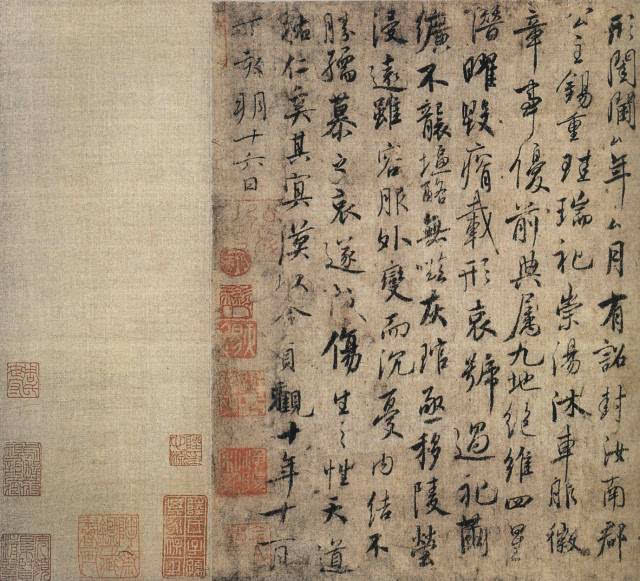 形閨闈厶年厶月有詔封汝南郡
公主錫重珪瑞礼崇湯沐車服徽
章事優前典屬九地絶維四星
潛曜毀瘠載形哀號過礼繭
纊不襲塩酪無嗞灰琯亟移陵塋
浸遠雖容服外變而沉憂内結不
勝孺慕之哀遂成傷生之性天道
祐仁奚其冥漠以今貞觀十年十一月
丁亥朔十六日